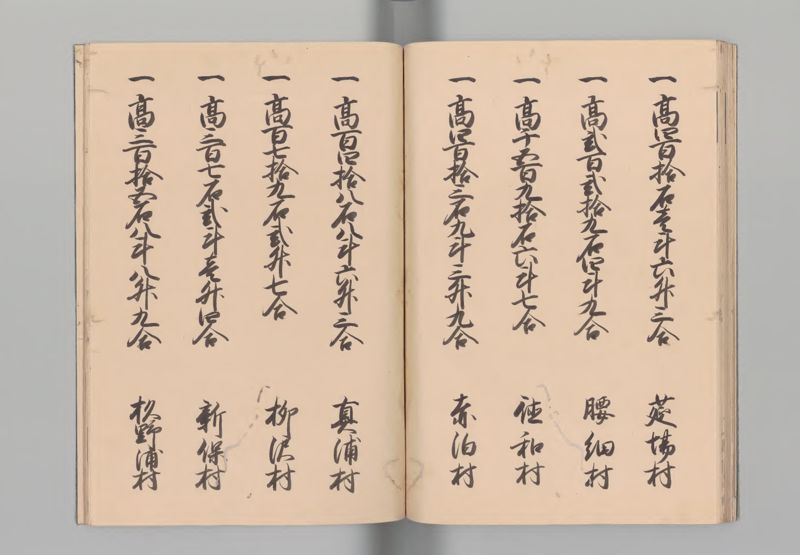 一 高四百拾石壱斗六升三合 莚場村
一 高弐百弐拾九石四斗九合 腰細村
一 高千五百九拾石六斗七合 徳和村
一 高四百拾三石九斗三升九合 赤泊村
一 高百四拾八石八斗六升三合 真浦村
一 高百七拾九石弐升七合 柳沢村
一 高三百七石弐斗壱升四合 新保村
一 高三百拾五石八斗八升九合 杦野浦村